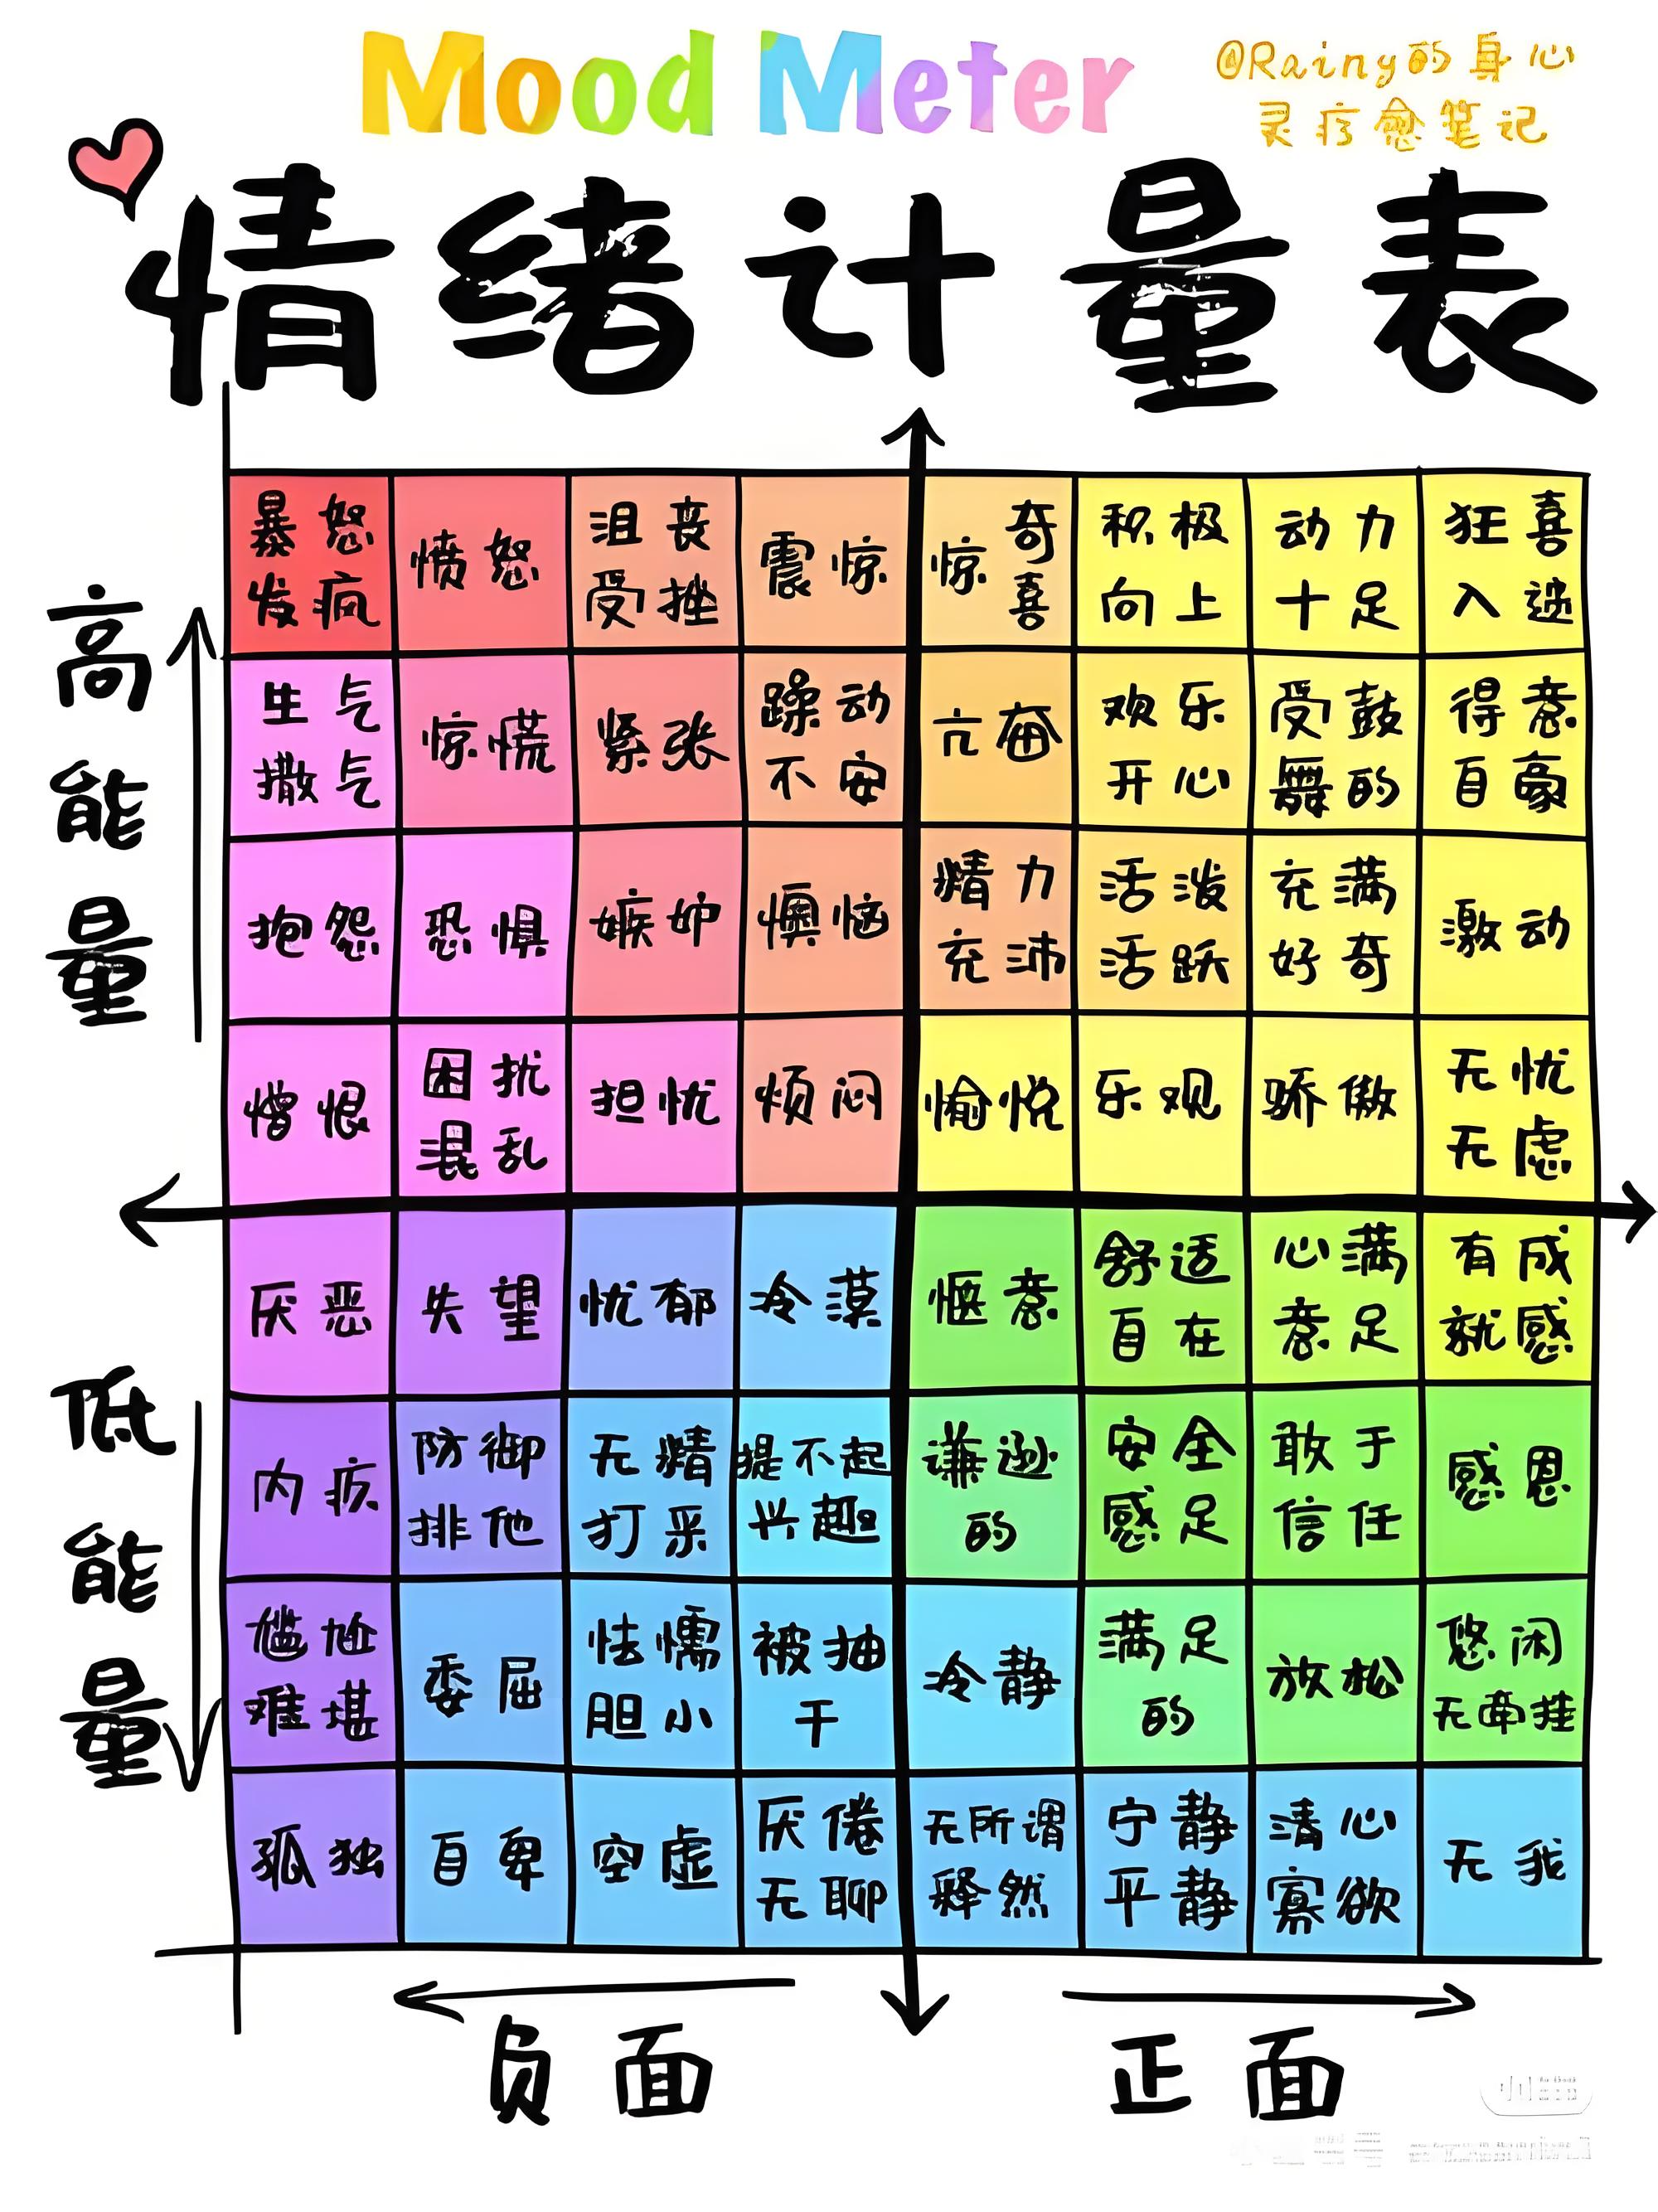 Mood Meter
@Rainy的身心
灵疗愈笔记
情绪计量表
高能量
低能量
暴怒
发疯
愤怒
沮丧
受挫
震惊
惊奇
喜
积极
向上
动力
十足
狂喜
入迷
生气
撒气
惊慌
紧张
躁动
不安
亢奋
欢乐
开心
受鼓
舞的
得意
自豪
抱怨
恐惧
嫉妒
懊恼
精力
充沛
活泼
活跃
充满
好奇
激动
憎恨
困扰
混乱
担忧
烦闷
愉悦
乐观
骄傲
无忧
无虑
厌恶
失望
忧郁
冷漠
惬意
舒适
自在
心满
意足
有成
就感
内疚
防御
排他
无精
打采
提不起
兴趣
谦逊
的
安全
感足
敢于
信任
感恩
尴尬
难堪
委屈
怯懦
胆小
被抽
干
冷静
满足
的
放松
悠闲
无牵挂
孤独
自卑
空虚
厌倦
无聊
无所谓
释然
宁静
平静
清心
寡欲
无我
负面
正面